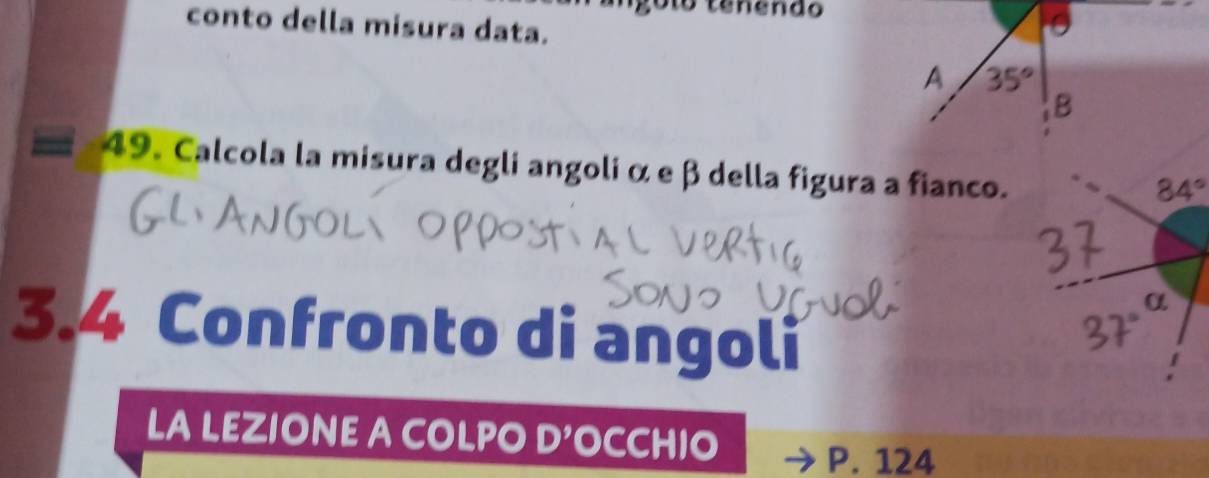 tenendo
conto della misura data.
A 35° B
49. Calcola la misura degli angoli α e β della figura a fianco.
84°
GLI ANGOLI OPPOSTI AL VERTIC
37
SONO UGUOLI
α
37°
3.4 Confronto di angoli
LA LEZIONE A COLPO D'OCCHIO
→ P. 124